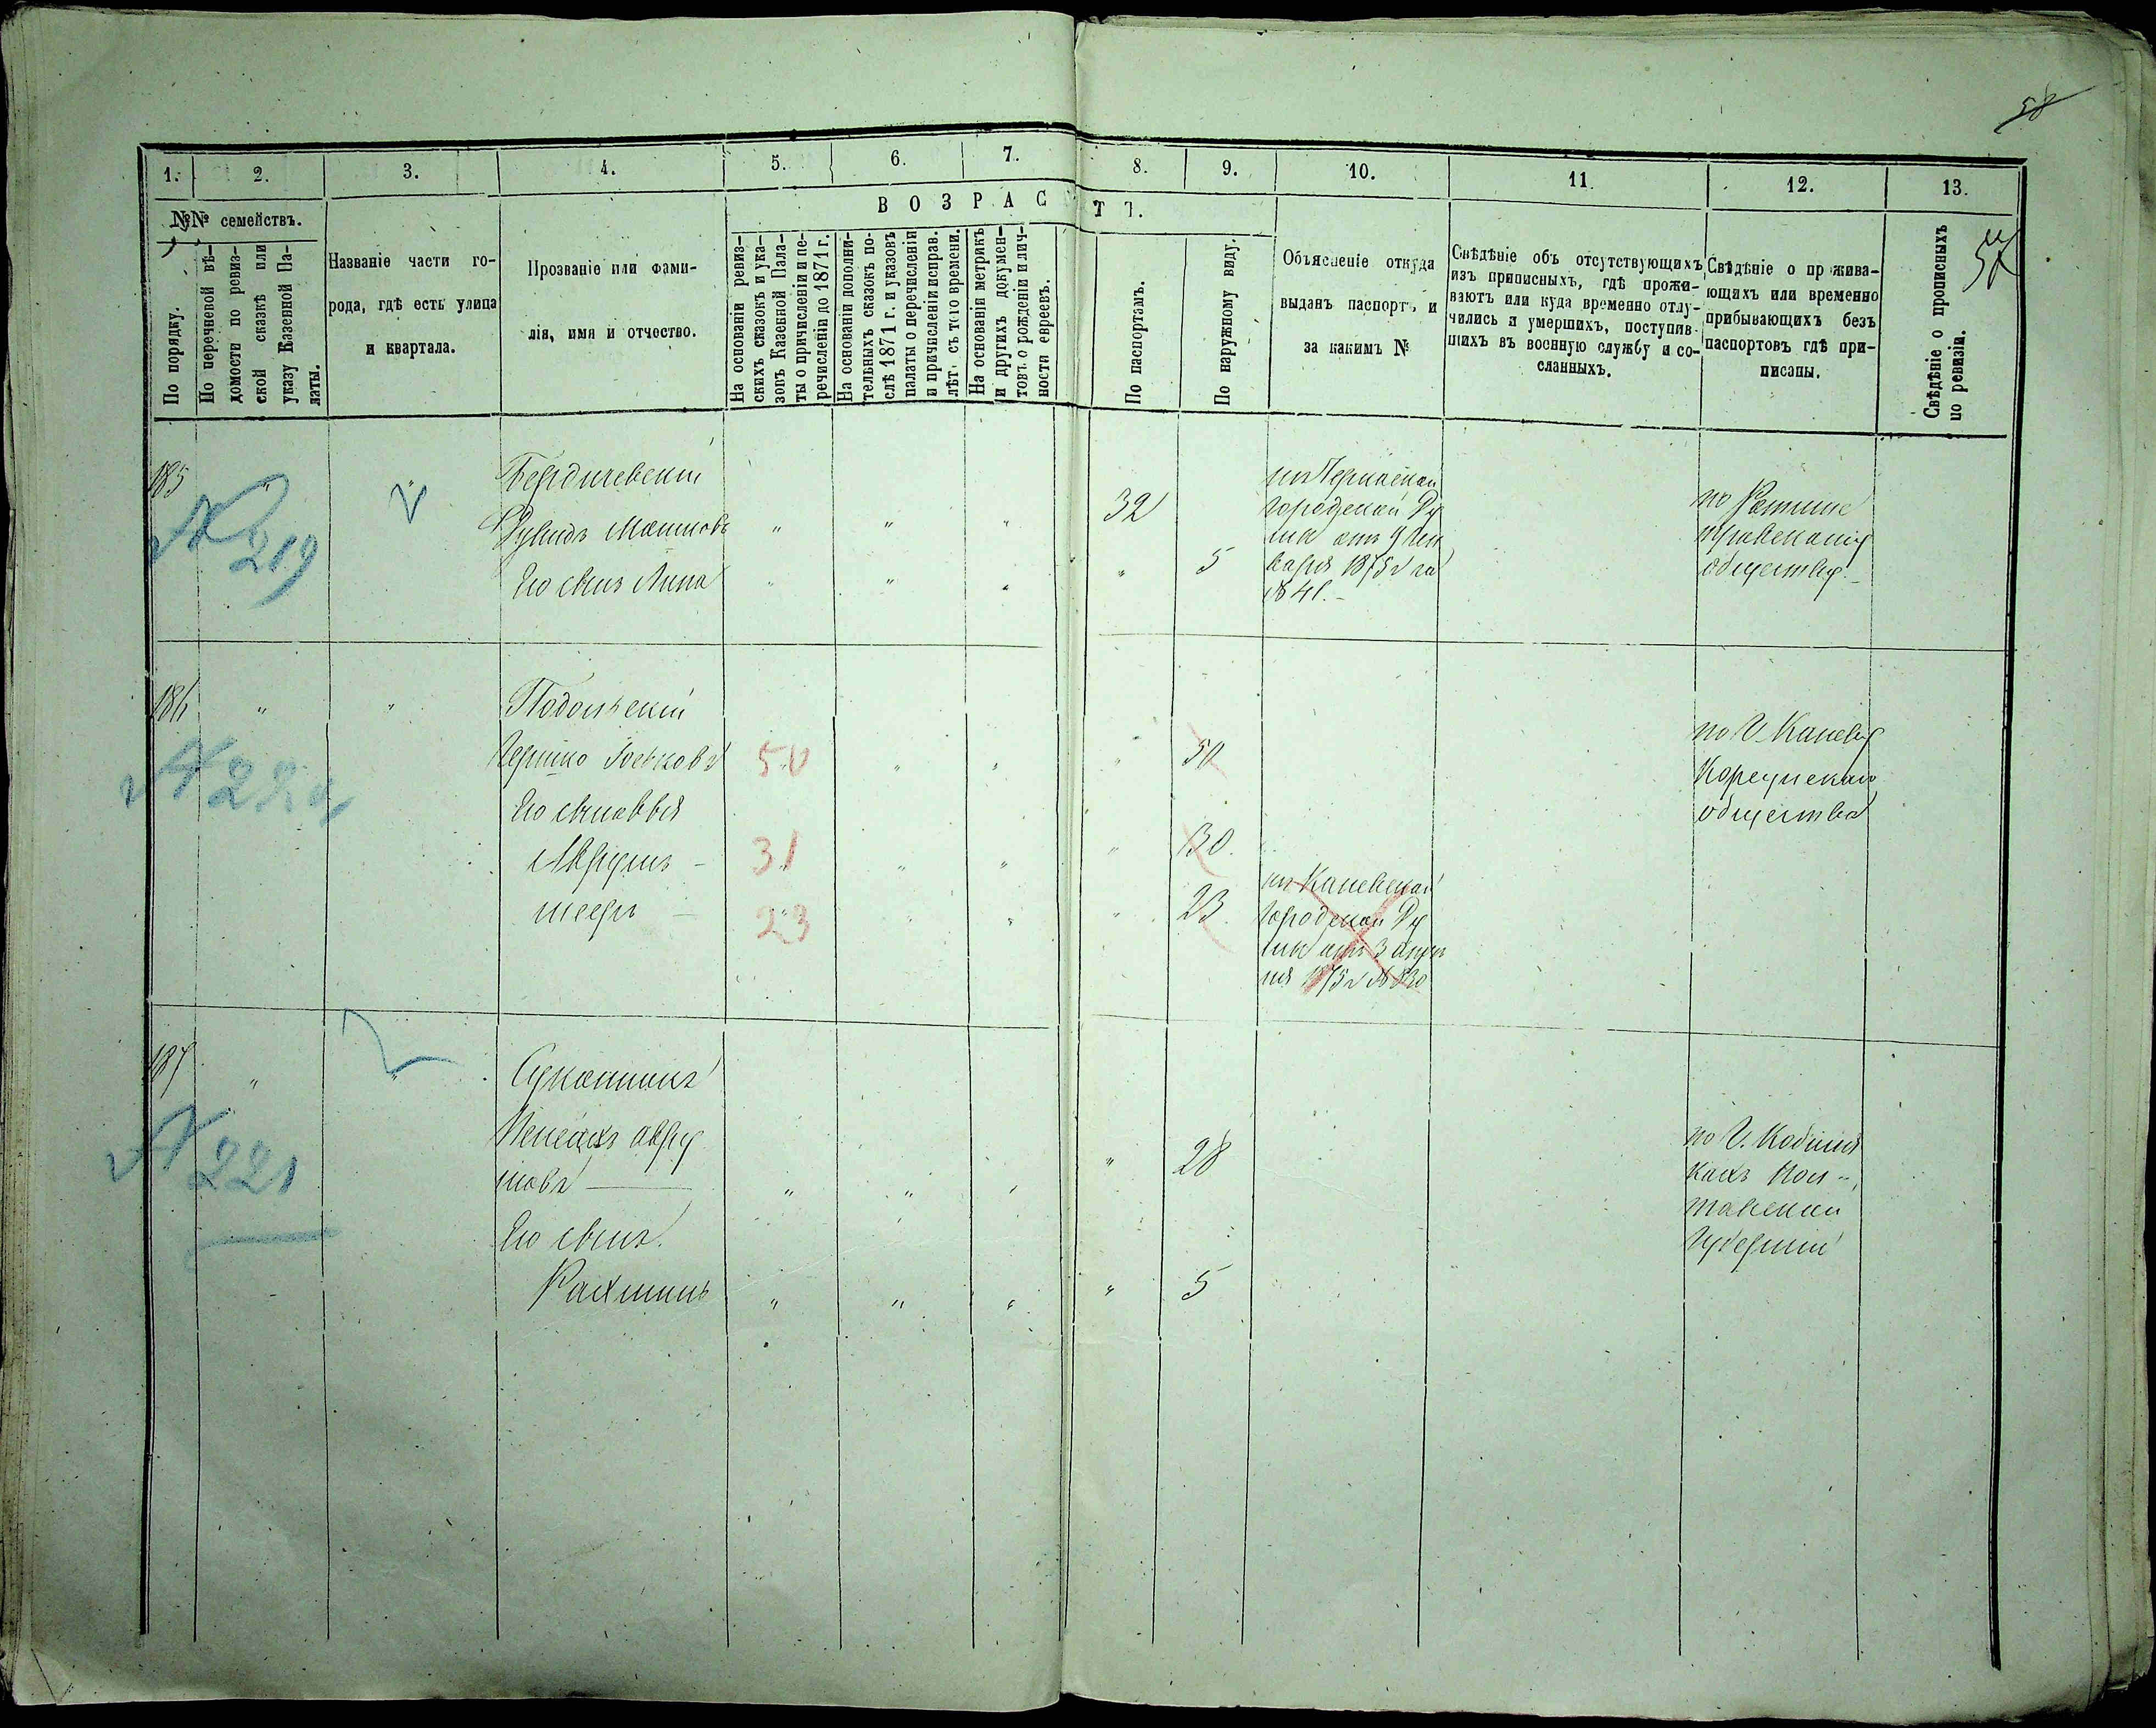 58
57
1. 2. 3. 4. 5. 6. 7. 8. 9. 10. 11. 12. 13.
№№ семействъ.
По порядку.
По перечневой вѣ-
домости по ревиз-
ской сказкѣ или
указу Казенной Па-
латы.
Названіе части го-
рода, гдѣ есть улица
и квартала.
Прозваніе или фами-
лія, имя и отчество.
ВОЗРАСТЪ.
На основаніи ревиз-
скихъ сказокъ и ука-
зовъ Казенной Пала-
ты о причисленіи и пе-
речисленіи до 1871 г.
На основаніи дополни-
тельныхъ сказокъ по-
слѣ 1871 г. и указовъ
палаты о перечисленіи
и причисленіи исправ.
лѣт. съ того времени.
На основаніи метрикъ
и другихъ докумен-
товъ о рожденіи и лич-
ности евреевъ.
По паспортамъ.
По наружному виду.
Объясненіе откуда
выданъ паспортъ и
за какимъ №
Свѣдѣніе объ отсутствующихъ
изъ приписныхъ, гдѣ прожи-
ваютъ или куда временно отлу-
чились и умершихъ, поступив-
шихъ въ военную службу и со-
сланныхъ.
Свѣдѣніе о прожива-
ющихъ или временно
прибывающихъ безъ
паспортовъ гдѣ при-
писаны.
Свѣдѣніе о прописныхъ
по ревизіи.
185
№ 219
Бердичевскій
Дувидъ Мошковъ " " " 32
Его сынъ Липа " " " " 5
городской Ду
мы отъ 9 Ген
варя 1875 г за
№ 41.
по
обществу.
186 " "
№ 220
Подольскій
Гершко Іоськовъ 50 " " " 50
Его сыновья
Аврумъ - 31 " " " 30
Шеерь - 23 " " " 23
изъ Каневской
городской Ду
мы отъ 3 апрѣ
ля 1875 г № 830
по г. Каневу
Корсунскаго
общества
187 " "
№ 221
Сукенникъ
авру
мовъ " " " " 28
Его сынъ
Рахмиль " " " " 5
по г. Кобыля
кахъ Пол-
тавской
губерніи